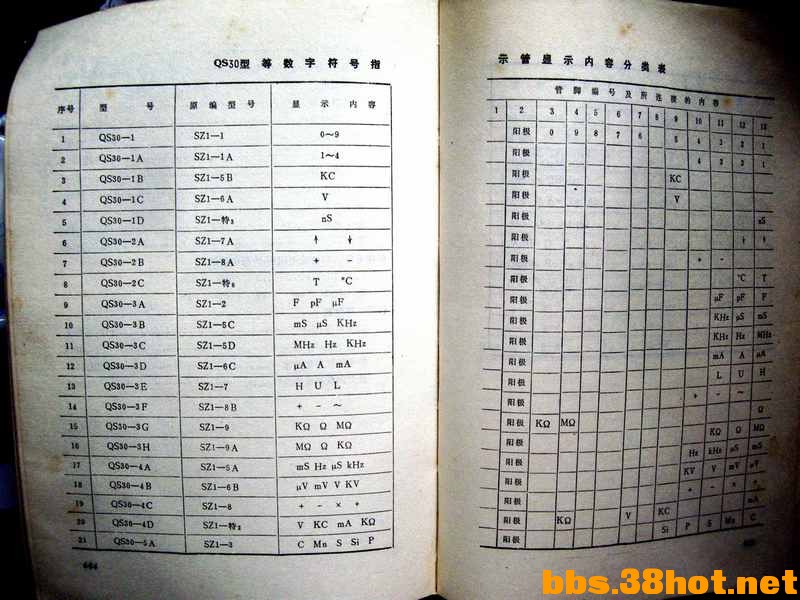 QS30型 等 数 字 符 号 指
序号 型 号 原 编 型 号 显 示 内 容
1 QS30—1 SZ1—1 0~9
2 QS30—1A SZ1—1A 1~4
3 QS30—1B SZ1—5B KC
4 QS30—1C SZ1—6A V
5 QS30—1D SZ1—特3 nS
6 QS30—2A SZ1—7A ↑ ↓
7 QS30—2B SZ1—8A + -
8 QS30—2C SZ1—特6 T °C
9 QS30—3A SZ1—2 F pF μF
10 QS30—3B SZ1—5C mS μS KHz
11 QS30—3C SZ1—5D MHz Hz KHz
12 QS30—3D SZ1—6C μA A mA
13 QS30—3E SZ1—7 H U L
14 QS30—3F SZ1—8B + - ~
15 QS30—3G SZ1—9 KΩ Ω MΩ
16 QS30—3H SZ1—9A MΩ Ω KΩ
17 QS30—4A SZ1—5A mS Hz μS kHz
18 QS30—4B SZ1—6B μV mV V KV
19 QS30—4C SZ1—8 + - × ÷
20 QS30—4D SZ1—特2 V KC mA KΩ
21 QS30—5A SZ1—3 C Mn S Si P
664
示 管 显 示 内 容 分 类 表
管 脚 编 号 及 所 连 极 的 内 容
1 2 3 4 5 6 7 8 9 10 11 12 13
阳极 0 9 8 7 6 5 4 3 2 1
阳极 4 3 2 1
阳极 KC
阳极 V
阳极 nS
阳极 ↑ ↓
阳极 + -
阳极 °C T
阳极 μF pF F
阳极 KHz μS mS
阳极 KHz Hz MHz
阳极 mA A μA
阳极 L U H
阳极 + - ~
阳极 KΩ MΩ Ω
阳极 KΩ Ω MΩ
阳极 Hz kHz μS mS
阳极 KV V mV μV
阳极 + - ×
阳极 KΩ V KC mA
阳极 Si P S Mn C
bbs.38hot.net